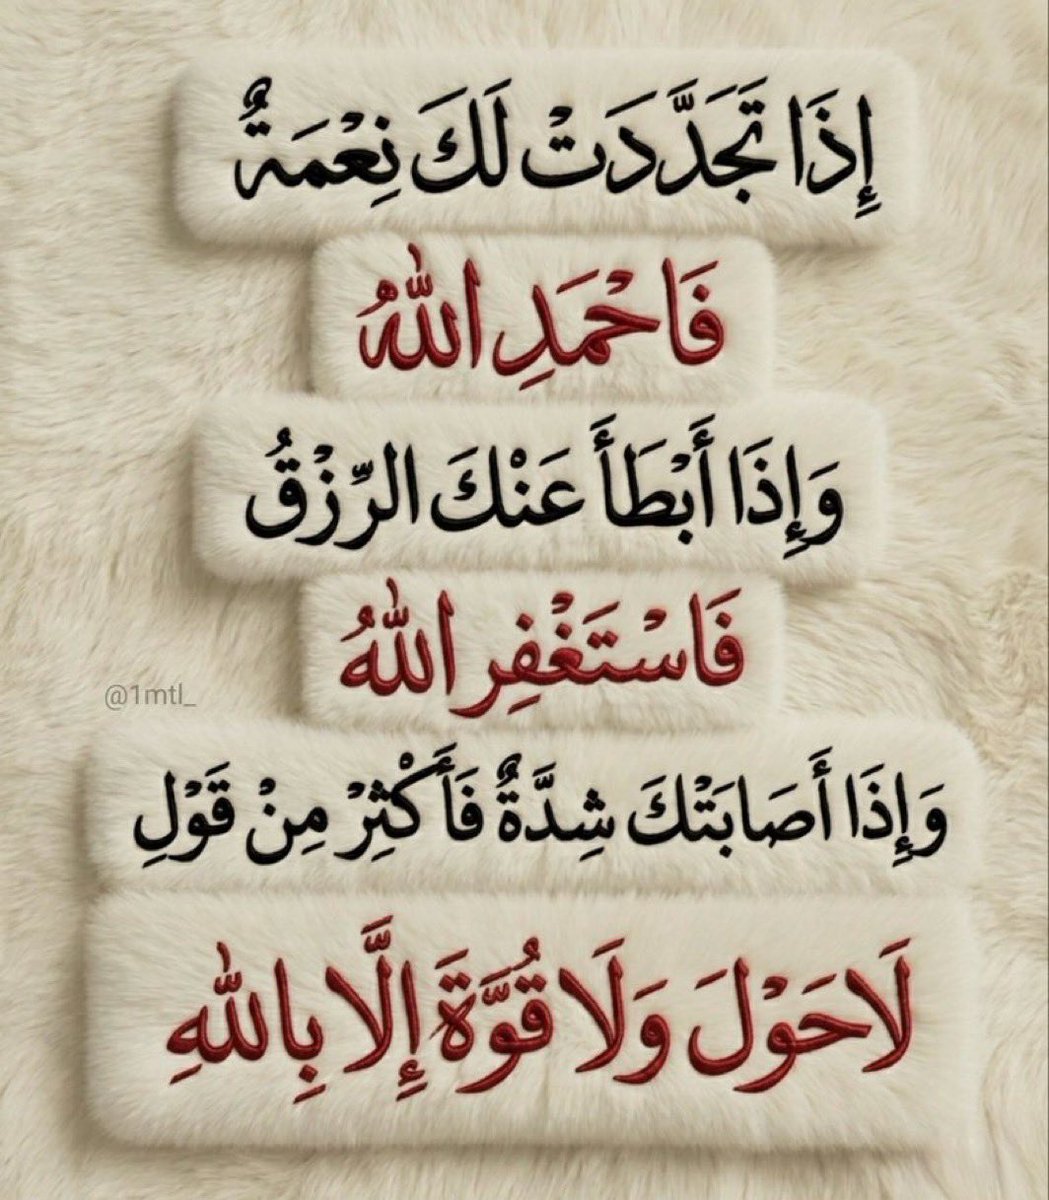 إِذَا تَجَدَّدَتْ لَكَ نِعْمَةٌ
فَاحْمَدِ اللّٰهُ
وَإِذَا أَبْطَأَ عَنْكَ الرِّزْقُ
فَاسْتَغْفِرِ اللّٰهُ
@1mtl_
وَإِذَا أَصَابَتْكَ شِدَّةٌ فَأَكْثِرْ مِنْ قَوْلِ
لَا حَوْلَ وَلَا قُوَّةَ إِلَّا بِاللّٰهِ